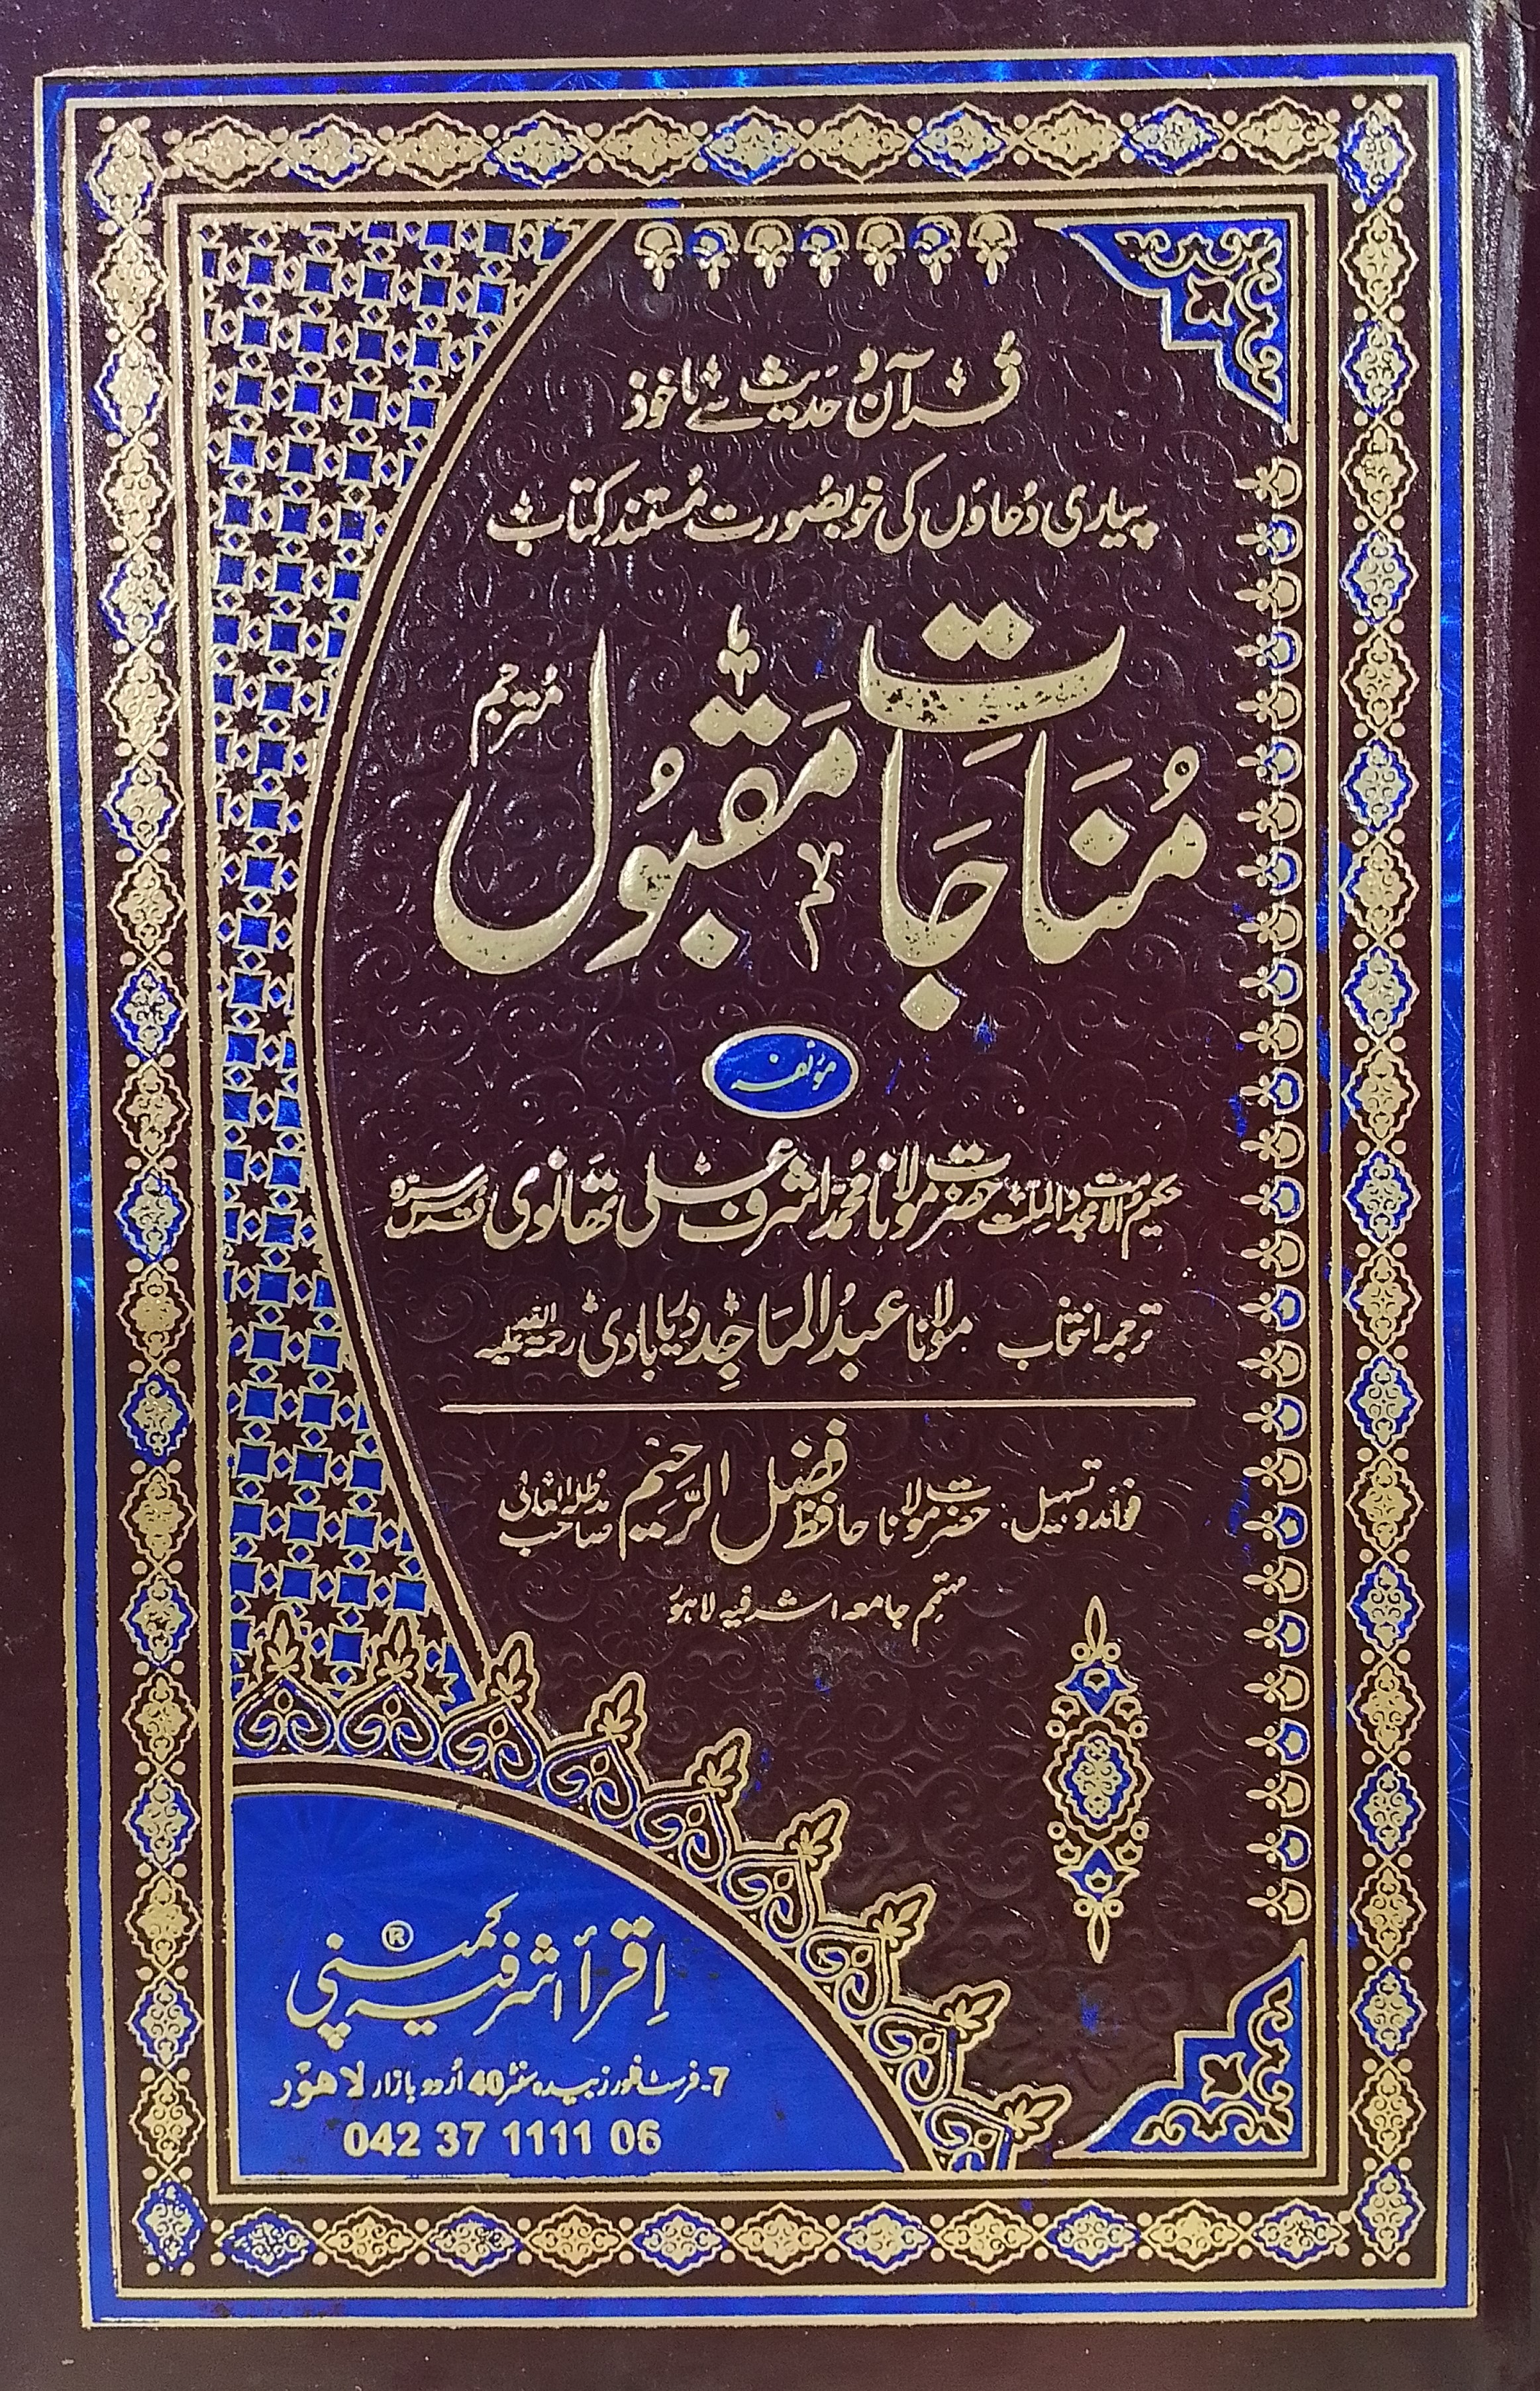 قرآن و حدیث سے ماخوذ
پیاری دُعاؤں کی خوبصورت مُستند کتاب
مُناجاتِ مَقبُول مُترجم
مؤلفہ
حکیم الامت مجدد الملت حضرت مولانا محمد اشرف علی تھانوی قدس سرہ
ترجمہ انتخاب مولانا عبدُ الماجِد دریابادی رحمۃ اللہ علیہ
فوائد و تسہیل: حضرت مولانا حافظ فضل الرحیم صاحب مدظلہ العالی
مہتمم جامعہ اشرفیہ لاہور
اِقرأ اشرفیہ کمپنی ®
7-فرسٹ فلور زبیدہ سنٹر 40 اُردو بازار لاہور
042 37 1111 06